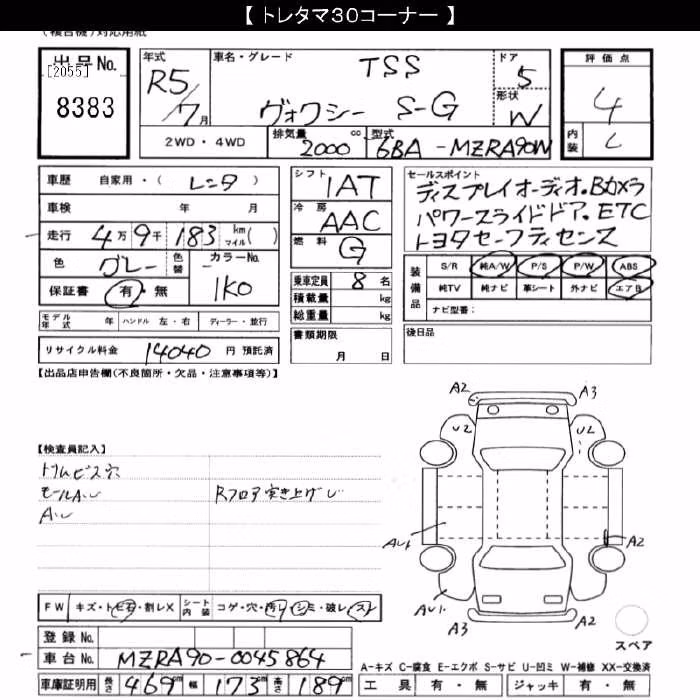 【 トレタマ30コーナー 】
(複合機)対応用紙
出品No.
[2055]
8383
年式
R5/7月
車名・グレード
TSS
ヴォクシー S-G
ドア
5
形状
W
評価点
4
内装
C
2WD・4WD
排気量
2000 cc
型式
6BA-MZRA90W
車歴 自家用・( レンタ )
車検 年 月
走行 4万9千183 km マイル( )
色 グレー 色替 カラーNo. 1K0
保証書 有・無
モデル年式 年 ハンドル 左・右 ディーラー・並行
リサイクル料金 14040 円 預託済
シフト 1AT
冷房 AAC
燃料 G
乗車定員 8 名
積載量 kg
総重量 kg
書類期限
月 日
セールスポイント
ディスプレイオーディオ.Bカメラ
パワースライドドア.ETC
トヨタセーフティセンス
装備品
S/R 純A/W P/S P/W ABS
純TV 純ナビ 革シート 外ナビ エアB
ナビ型番:
後日品
【出品店申告欄(不良箇所・欠品・注意事項等)】
【検査員記入】
トリムビス穴
モールAU
AU
Rフロア突き上げU
A2 A3
U2 U2
AU1 A2
AU1
A3 A2
スペア
FW キズ・トビ石・割レX シート内装 コゲ・穴・汚レ・シミ・破レ・スレ
登録No.
車台No. MZRA90-0045864
車庫証明用 長さ 469cm 幅 173cm 高さ 189cm
A-キズ C-腐食 E-エクボ S-サビ U-凹ミ W-補修 XX-交換済
工具 有・無 ジャッキ 有・無